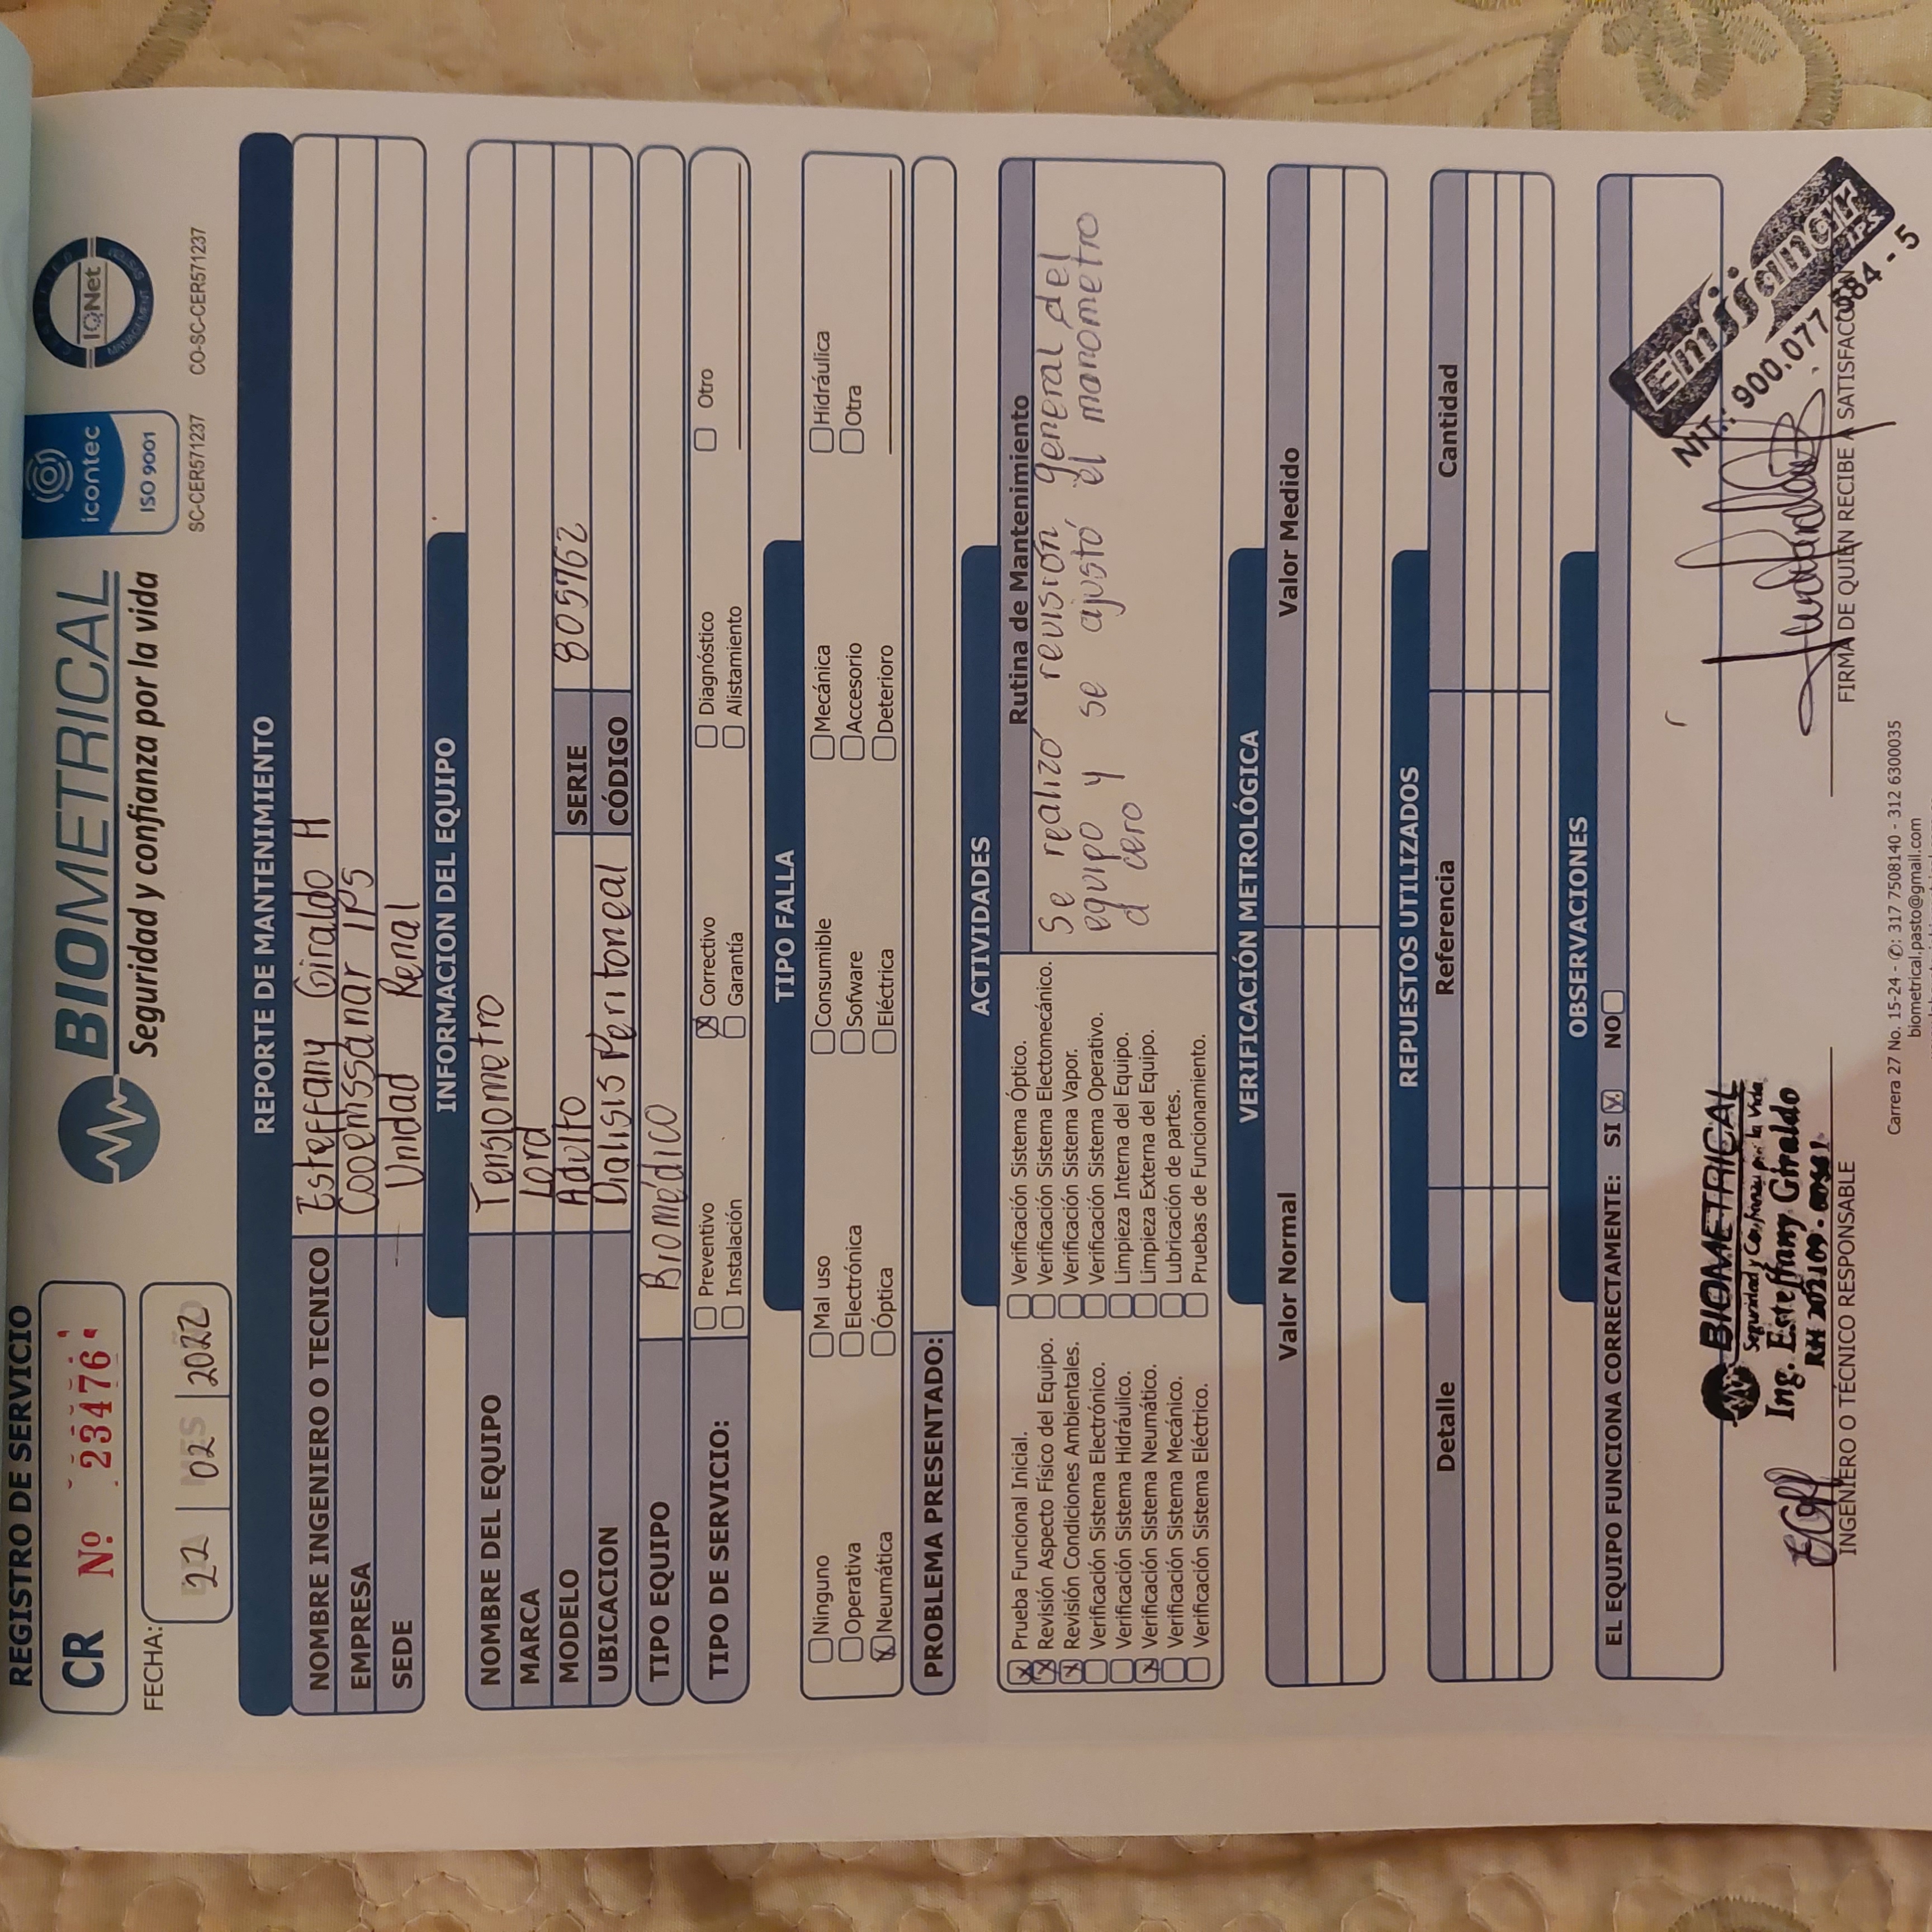 REGISTRO DE SERVICIO
CR Nº 23476
FECHA: 22 02 2022
BIOMETRICAL
Seguridad y confianza por la vida
icontec
ISO 9001
SC-CER571237
CERTIFIED
IQNet
MANAGEMENT SYSTEM
CO-SC-CER571237
REPORTE DE MANTENIMIENTO
NOMBRE INGENIERO O TECNICO Esteffany Giraldo H
EMPRESA Cooemssanar IPS
SEDE Unidad Renal
INFORMACION DEL EQUIPO
NOMBRE DEL EQUIPO Tensiometro
MARCA Lord
MODELO Adulto SERIE 805762
UBICACION Dialisis Peritoneal CÓDIGO
TIPO EQUIPO Biomédico
TIPO DE SERVICIO:
Preventivo X Correctivo Diagnóstico Otro
Instalación Garantía Alistamiento
TIPO FALLA
Ninguno Mal uso Consumible Mecánica Hidráulica
Operativa Electrónica Sofware Accesorio Otra
X Neumática Óptica Eléctrica Deterioro
PROBLEMA PRESENTADO:
ACTIVIDADES
X Prueba Funcional Inicial.
X Revisión Aspecto Físico del Equipo.
X Revisión Condiciones Ambientales.
Verificación Sistema Electrónico.
Verificación Sistema Hidráulico.
X Verificación Sistema Neumático.
Verificación Sistema Mecánico.
Verificación Sistema Eléctrico.
Verificación Sistema Óptico.
Verificación Sistema Electomecánico.
Verificación Sistema Vapor.
Verificación Sistema Operativo.
Limpieza Interna del Equipo.
Limpieza Externa del Equipo.
Lubricación de partes.
Pruebas de Funcionamiento.
Rutina de Mantenimiento
Se realizó revisión general del
equipo y se ajustó el manómetro
a cero
VERIFICACIÓN METROLÓGICA
Valor Normal Valor Medido
REPUESTOS UTILIZADOS
Detalle Referencia Cantidad
OBSERVACIONES
EL EQUIPO FUNCIONA CORRECTAMENTE: SI X NO
BIOMETRICAL
Seguridad y Confianza por la Vida
Ing. Esteffany Giraldo
EGH
INGENIERO O TÉCNICO RESPONSABLE
Emssanar IPS
NIT.: 900.077.584 - 5
FIRMA DE QUIEN RECIBE A SATISFACCIÓN
Carrera 27 No. 15-24 - ✆: 317 7508140 - 312 6300035
biometrical.pasto@gmail.com